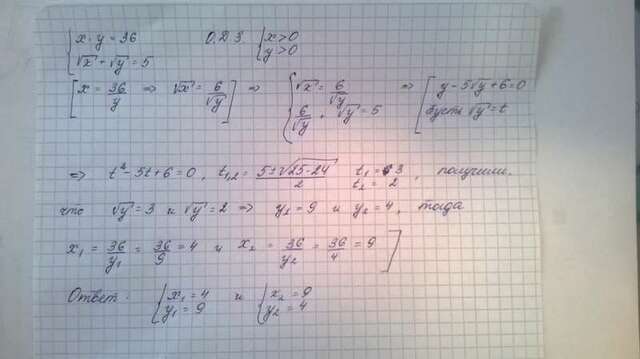 { x·y = 36    О.Д.З. { x>0
{ √x + √y = 5    { y>0
[ x = 36/y ⇒ √x = 6/√y ] ⇒ { √x = 6/√y ; 6/√y + √y = 5 ⇒ [ y - 5√y + 6 = 0 ; пусть √y = t
⇒ t² - 5t + 6 = 0, t1,2 = (5±√(25-24))/2   t1 = 3   t2 = 2, получим.
что √y = 3 и √y = 2 ⇒ y2 = 9 и y2 = 4, тогда
x1 = 36/y1 = 36/9 = 4 и x2 = 36/y2 = 36/4 = 9 ]
Ответ: { x1 = 4 и { x2 = 9
{ y1 = 9   { y2 = 4